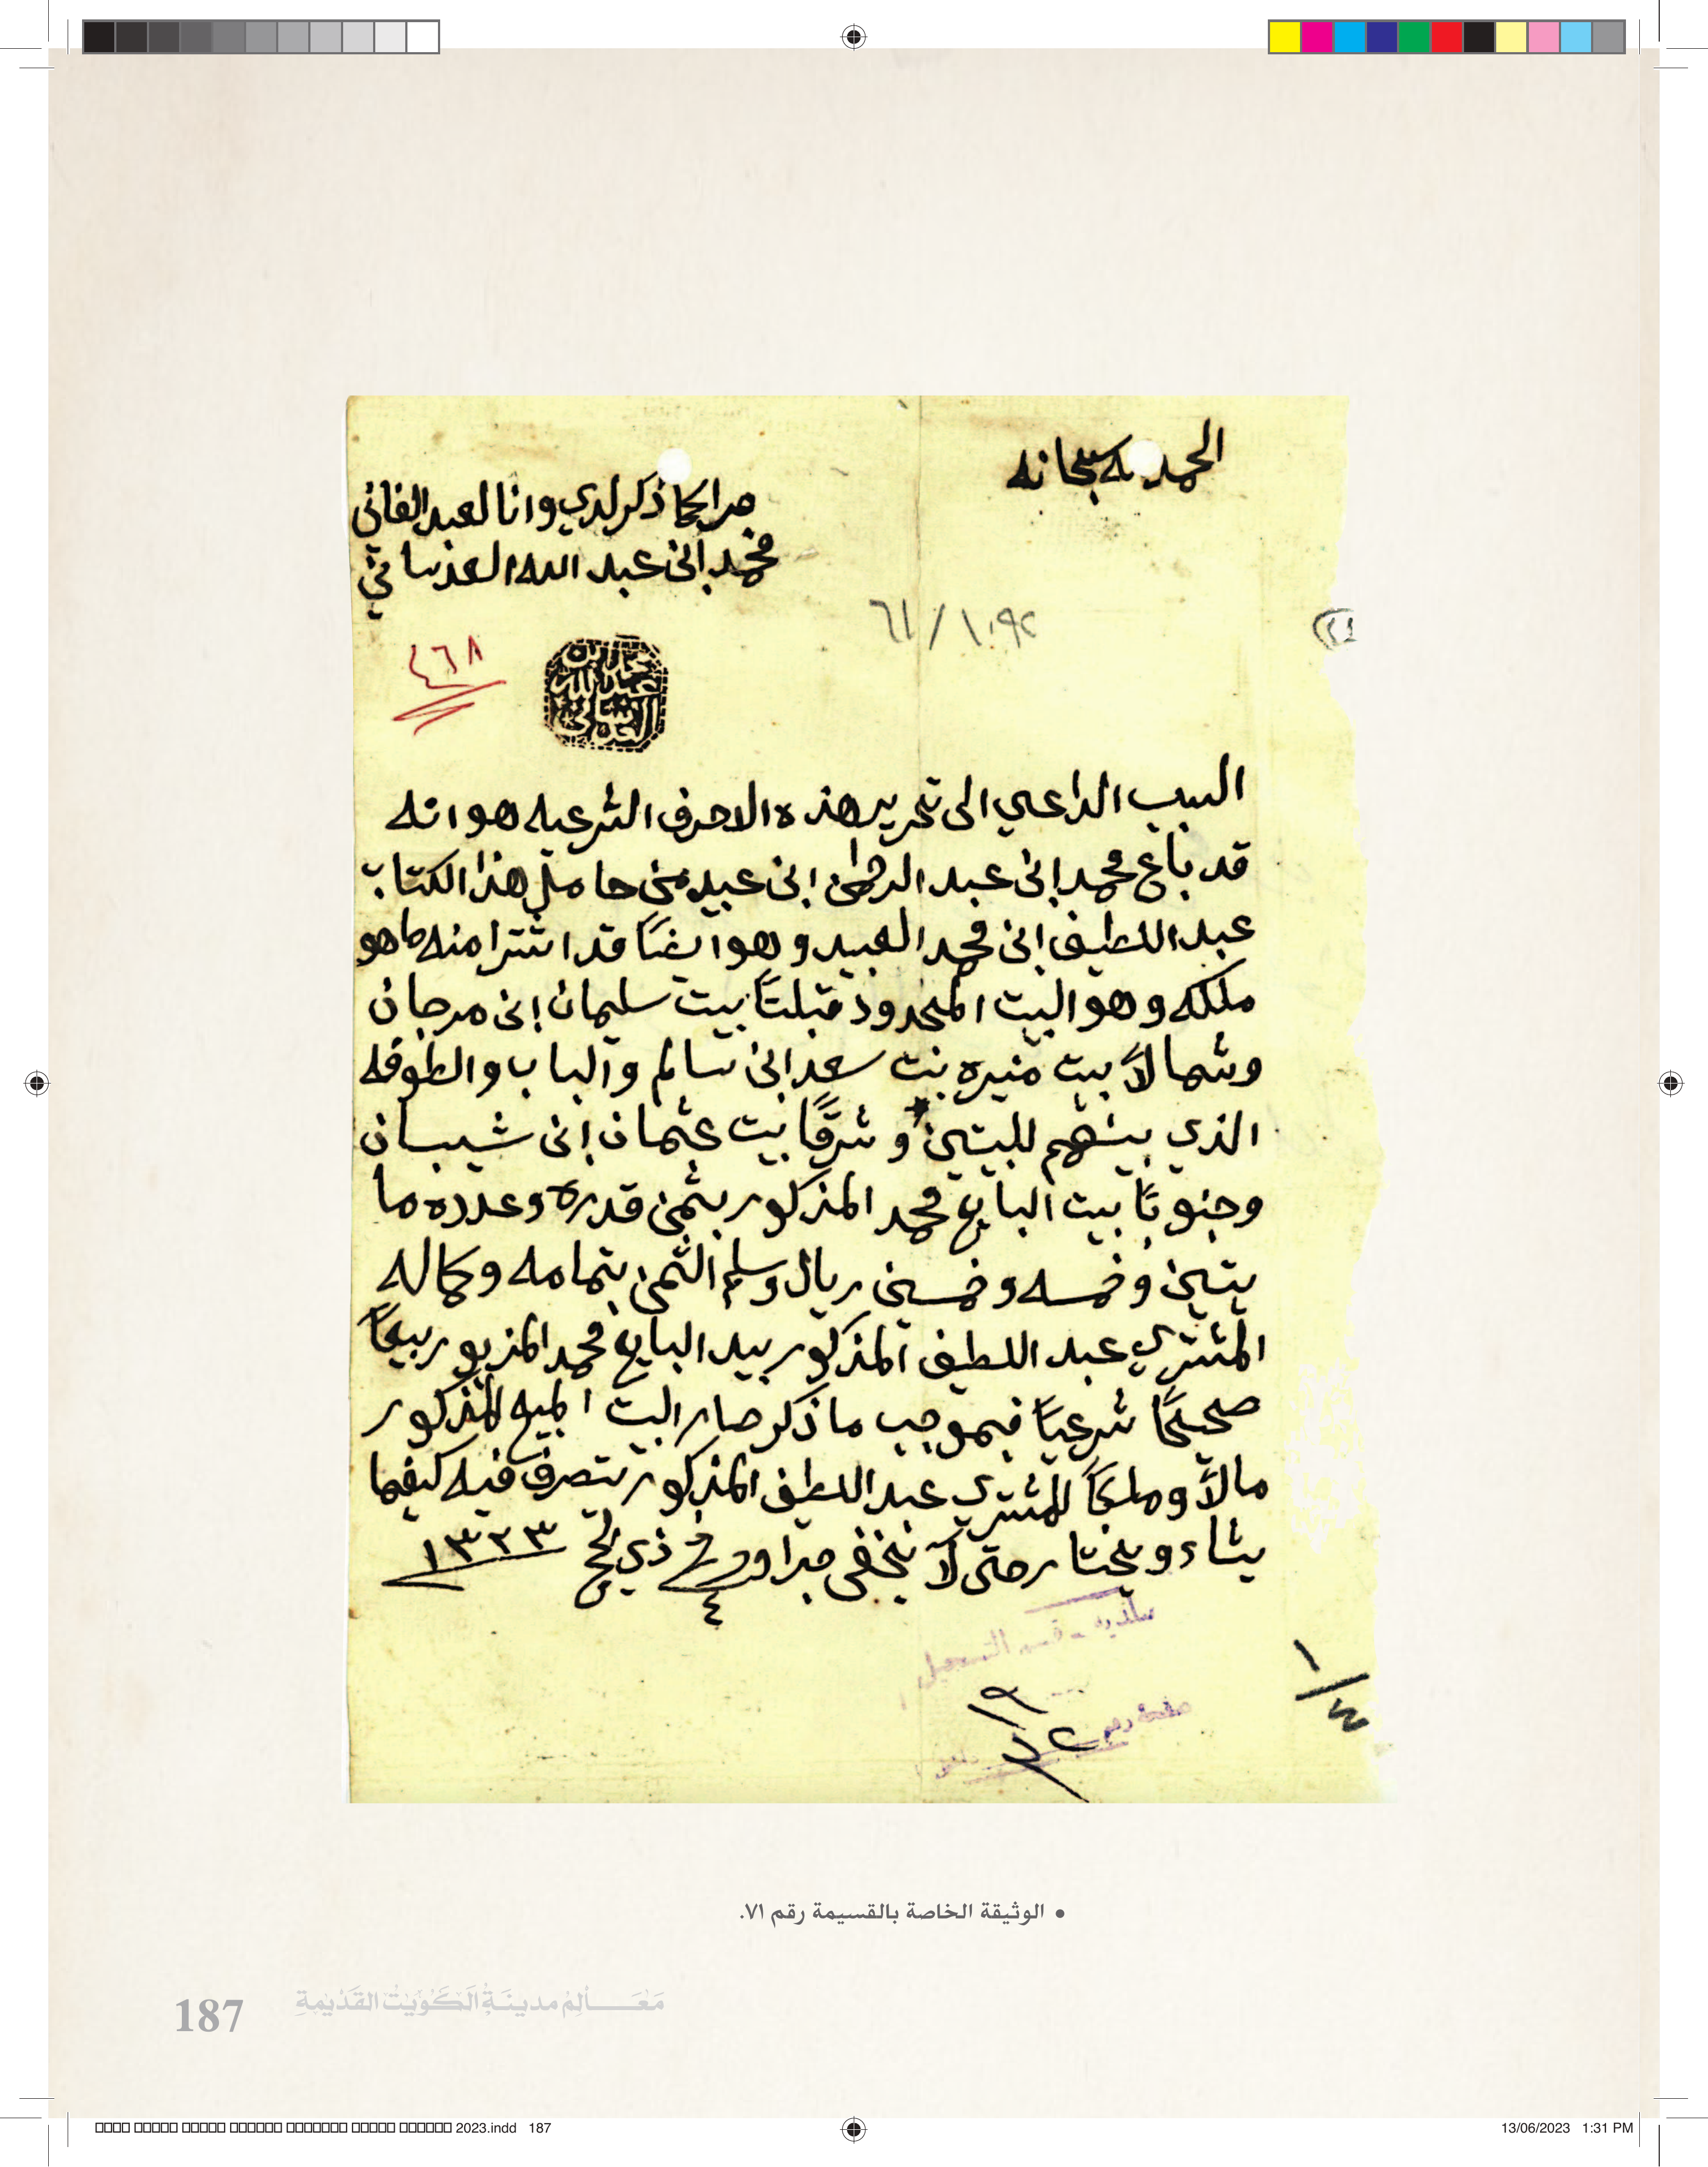 الحمد لله سبحانه
جرا كما ذكر لدي وانا لعبد الفاني
محمد ابن عبد الله العدساني
٦١/١٠٩٢
(٢٤
٤٦٨
محمد ابن
عبد الله
العدساني
السبب الداعي الى تحرير هذه الاحرف الشرعيه هو انه
قد باع محمد ابن عبد الرحمن ابن عبيد من حامل هذا الكتاب
عبد اللطيف ابن محمد العبيد وهو ايضاً قد اشترا منه ما هو
ملكه وهو البيت المحدود قبلتاً بيت سليمان ابن مرجان
وشمالاً بيت منيره بنت سعد ابن سالم والباب والطوفه
الذي بينهم للبيتين وشرقاً بيت عثمان ابن شيبان
وجنوباً بيت البايع محمد المذكور بثمن قدره وعدده ما
يتين وخمسه وخمسين ريال وسلم الثمن بتمامه وكماله
المشتري عبد اللطيف المذكور بيد البايع محمد المزبور بيعاً
صحيحاً شرعياً فبموجب ما ذكر صار البيت المبيع المذكور
مالاً وملكاً للمشتري عبد اللطيف المذكور يتصرف فيه كيفما
يشاء ويختار حتى لا يخفى جرا وحرر في ٤ ذي الحج ١٣٣٣
بلديه - قسم التسجيل
صفحة رقم
١/٤
• الوثيقة الخاصة بالقسيمة رقم ٧١.
187 مَعَالِمُ مدينَةِ الكُوَيْتِ القَدِيمَةِ
2023.indd 187 13/06/2023 1:31 PM